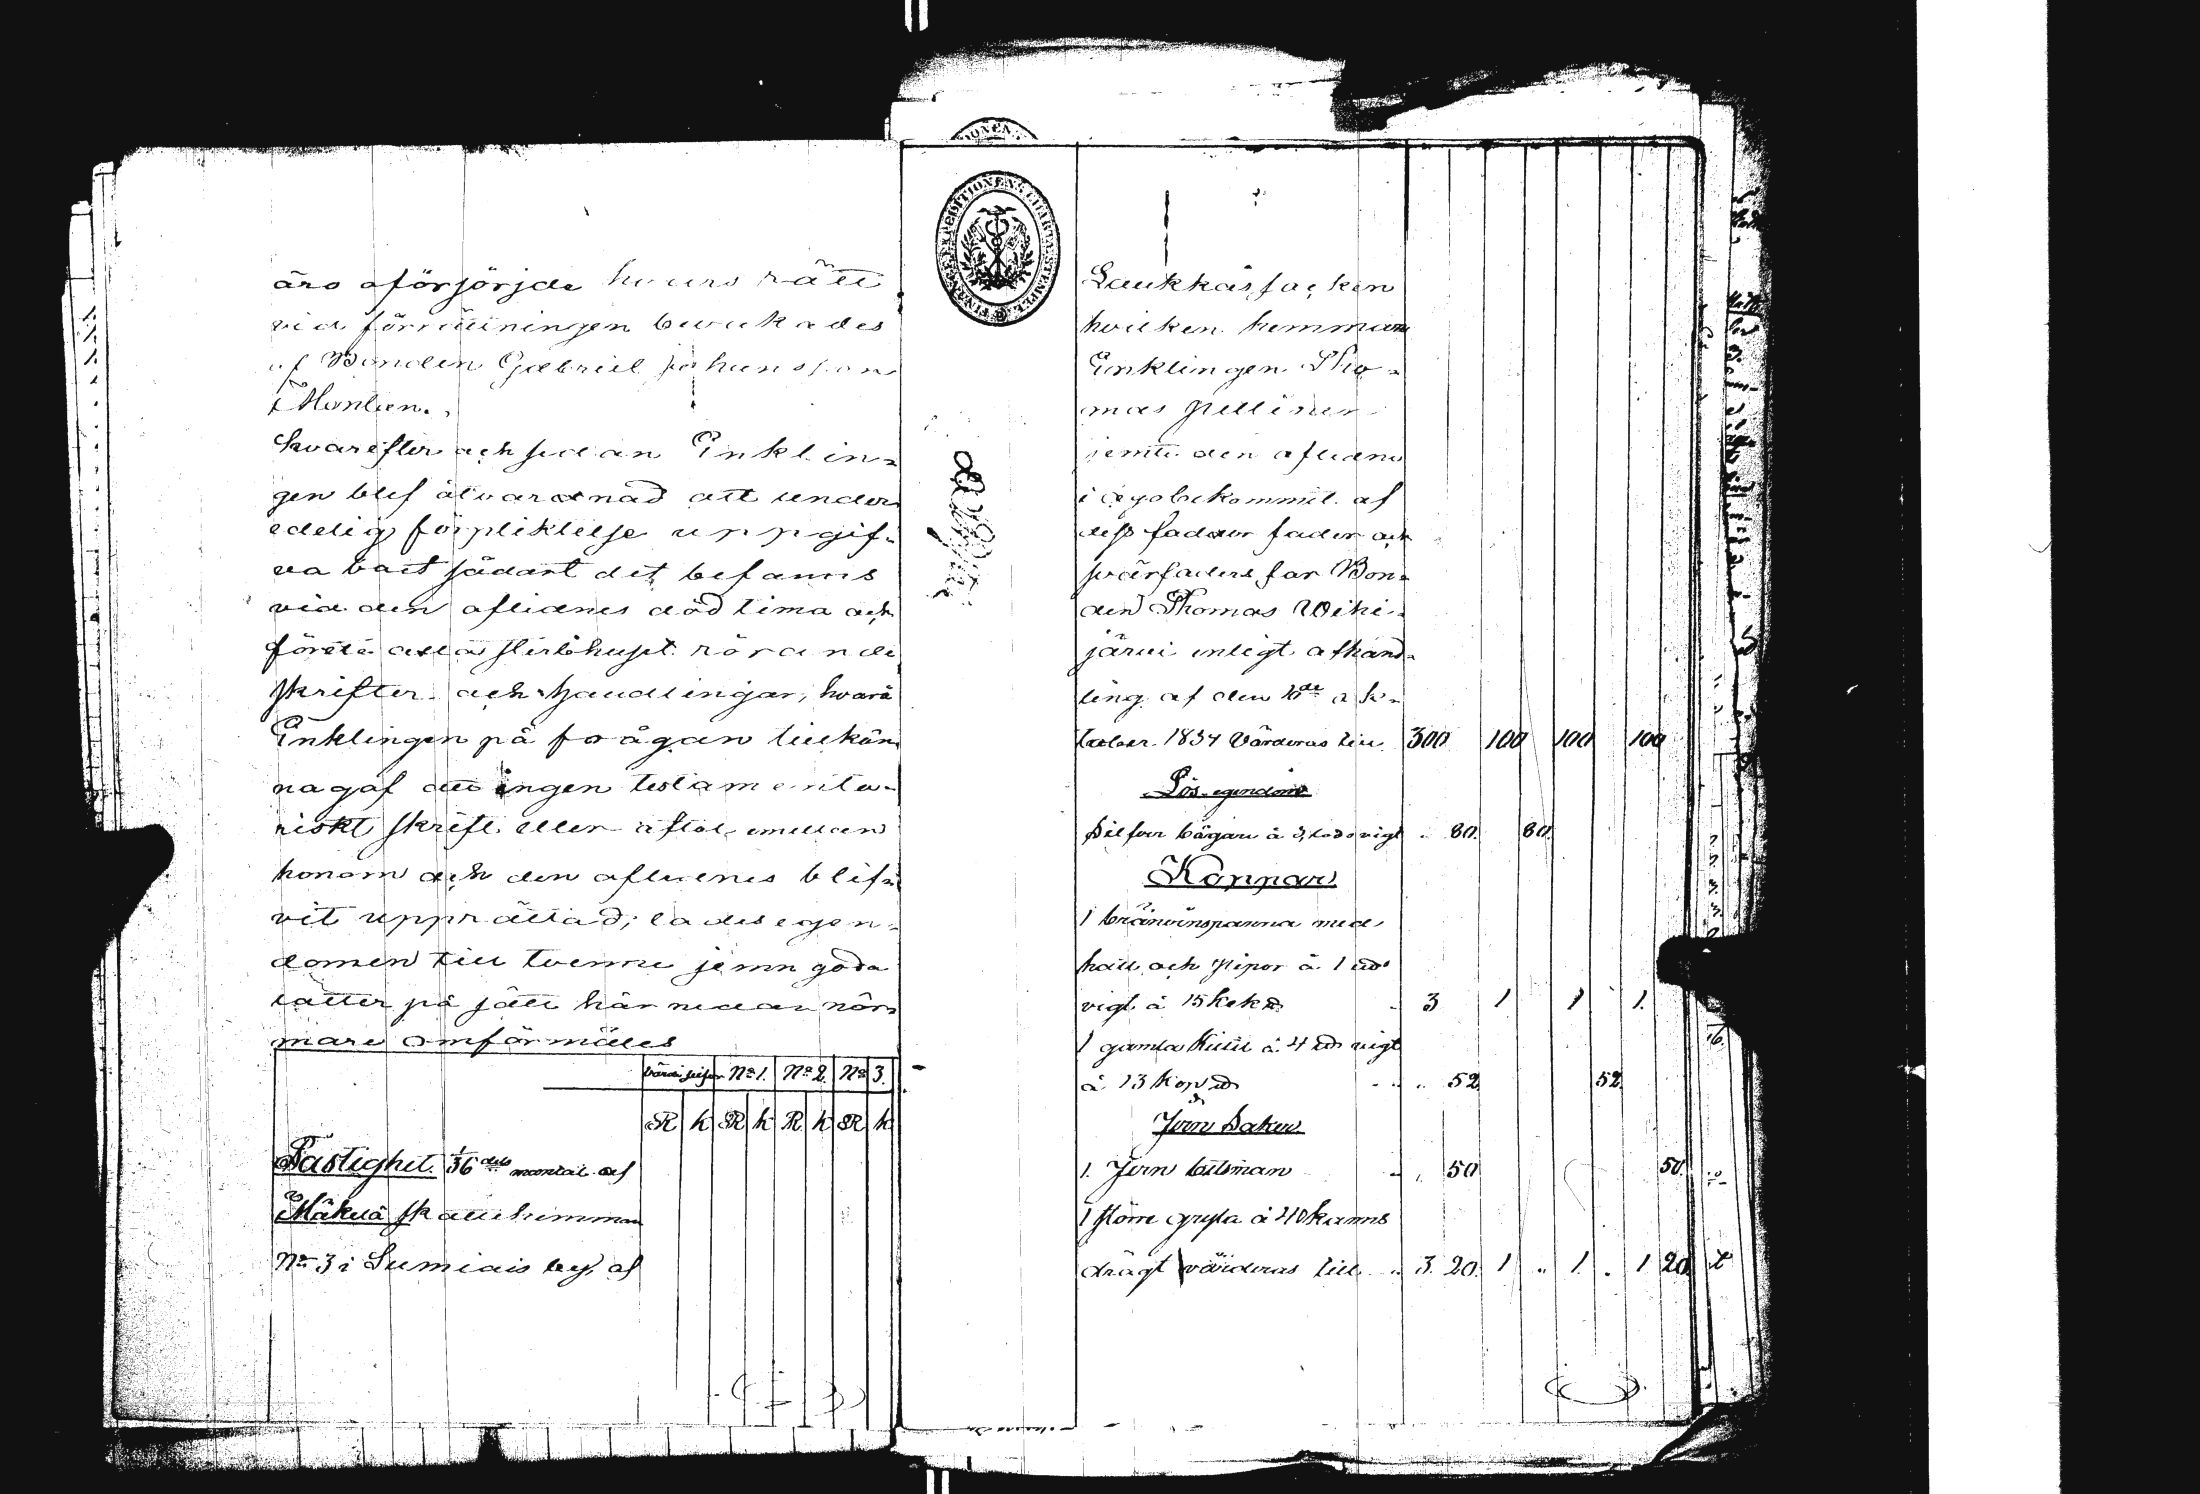 äro oförsörjde hvars rätt
vid förrättningen bevakades
af Bonden Gabriel Johansson
Manten.
Hvarefter och sedan Enklin=
gen blef åtvarnad att under
edelig förpliktelse uppgif=
va boet sådant det befanns
vid den aflidnes död tima och
förete alla sterbhuset rörande
skrifter och handlingar, hvarå
Enklingen på frågan tillkän
nagaf att ingen testamenta=
riskt skrift eller aftal emellan
honom och den aflidnes blif=
vit upprättad; lades egen=
domen till tvenne jemn goda
lotter på sätt här nedan när=
mare omförmäles
värdi silfver No 1. No 2. No 3.
R k R k R k R k
Fastighet. 1/36 dels mantal af
Mäkelä skattehemman
No 3 i Sumiais by af
FINANCE EXPEDITIONENS CHARTÆ STEMPEL
Laukkas socken
hvilken hemman
Enklingen Tho=
mas Pellinen
jemte den aflidne
i ego bekommit af
dess fader fader och
svärfaders far Bon=
den Thomas Wihi=
järvi enligt afhand=
ling af den 10de ok=
tober 1834 Värderas till 300 100 100 100
Lös egendom
Silfver bägare à 3, lods vigt „ 80. 80.
Koppar
1 brännvinspanna med
hatt och pipor à 1 Ld
vigt à 15 kop - 3 1 1 1.
1 gamla kittil à 4 vigt
à 13 kop - „ 52 52.
Jern Saker
1. Jern betsman - „ 50 50.
1 större gryta à 40 kanns
drägt värderas till „ 3. 20. 1 „ 1. „ 1 20.